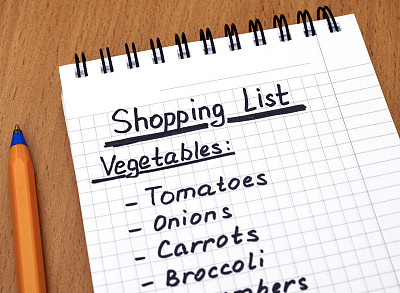 Shopping List
Vegetables:
- Tomatoes
- Onions
- Carrots
- Broccoli